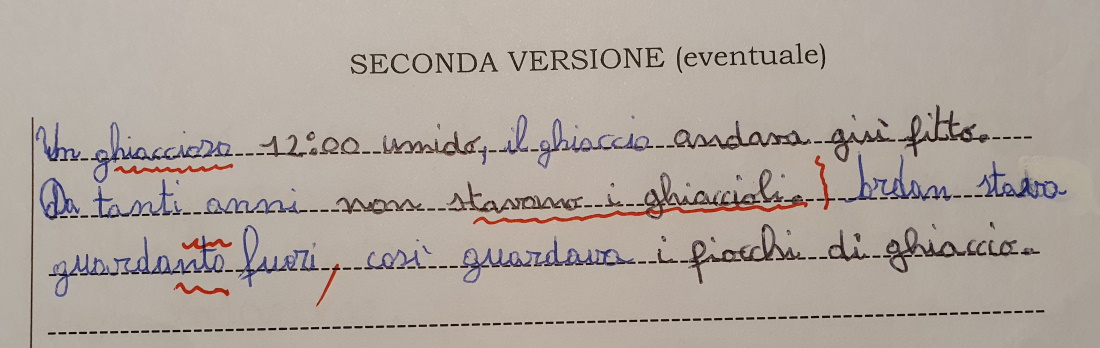 SECONDA VERSIONE (eventuale)
Un ghiaccioro 12:00 umido, il ghiaccio andava giù fitto.
Da tanti anni non stavano i ghiaccioli. brdan stava
guardanto fuori, così guardava i fiocchi di ghiaccio.